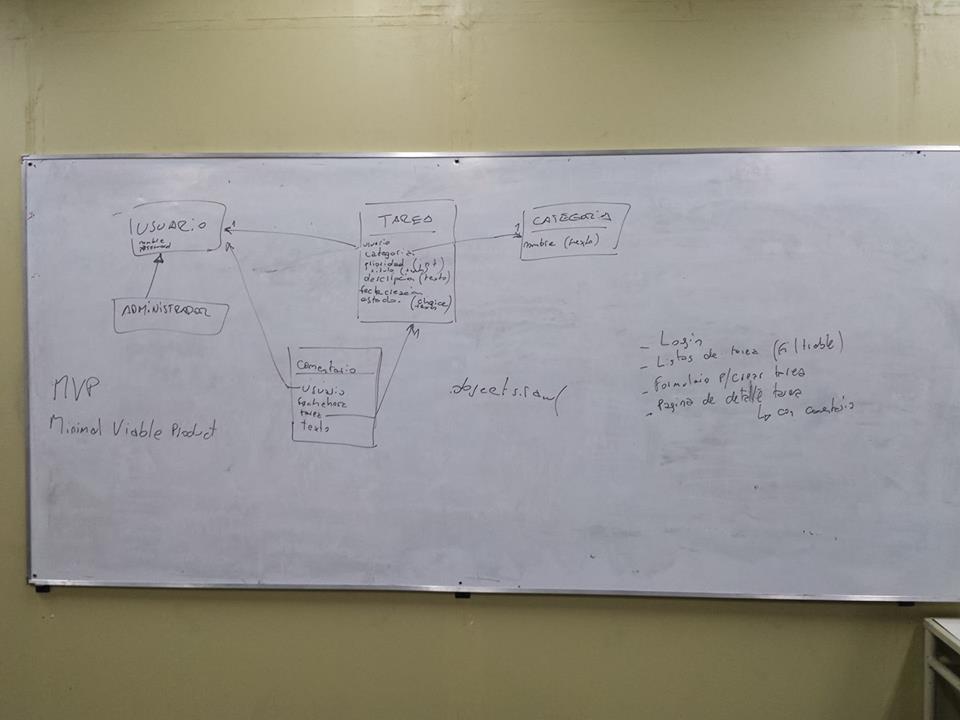 USUARIO
nombre
password
ADMINISTRADOR
TAREA
usuario
categoria
prioridad (int)
titulo (texto)
descripcion (texto)
fechacreacion
estado. (choice
texto)
1
CATEGORIA
nombre (texto)
Comentario
usuario
fechahora
tarea
texto
MVP
Minimal Viable Product
.objects.raw(
- Login
- Listas de tarea (Filtrable)
- Formulario p/crear tarea
- Pagina de detalle tarea
↳ con comentario